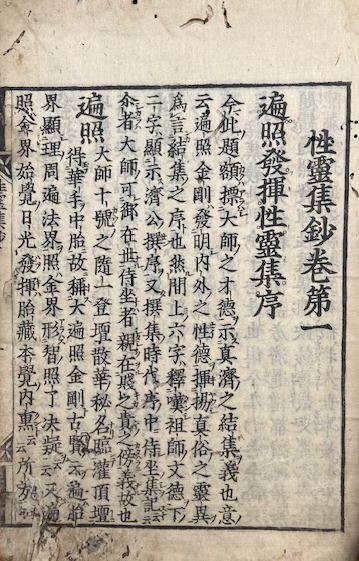 性靈集鈔卷第一
遍照發揮性靈集序
今此題額摽大師之才德示真濟之結集義也意
云遍照金剛發明内外之性德揮揚真俗之靈異
爲言結集之序也然間上六字釋嘆祖師文德下
二字顯示濟公撰序又撰集時代序中侍坐集記云
尒者大師可御在世侍坐者親在賎之貴之傍義故也
遍照 大師十號之隨一登壇散華秘名臨灌頂壇
得華手中胎故稱大遍照金剛古賢云遍胎
界顯理周遍法界照金界形智照了決疑云又遍
照金界始覺日光發揮胎藏本覺内熏云所